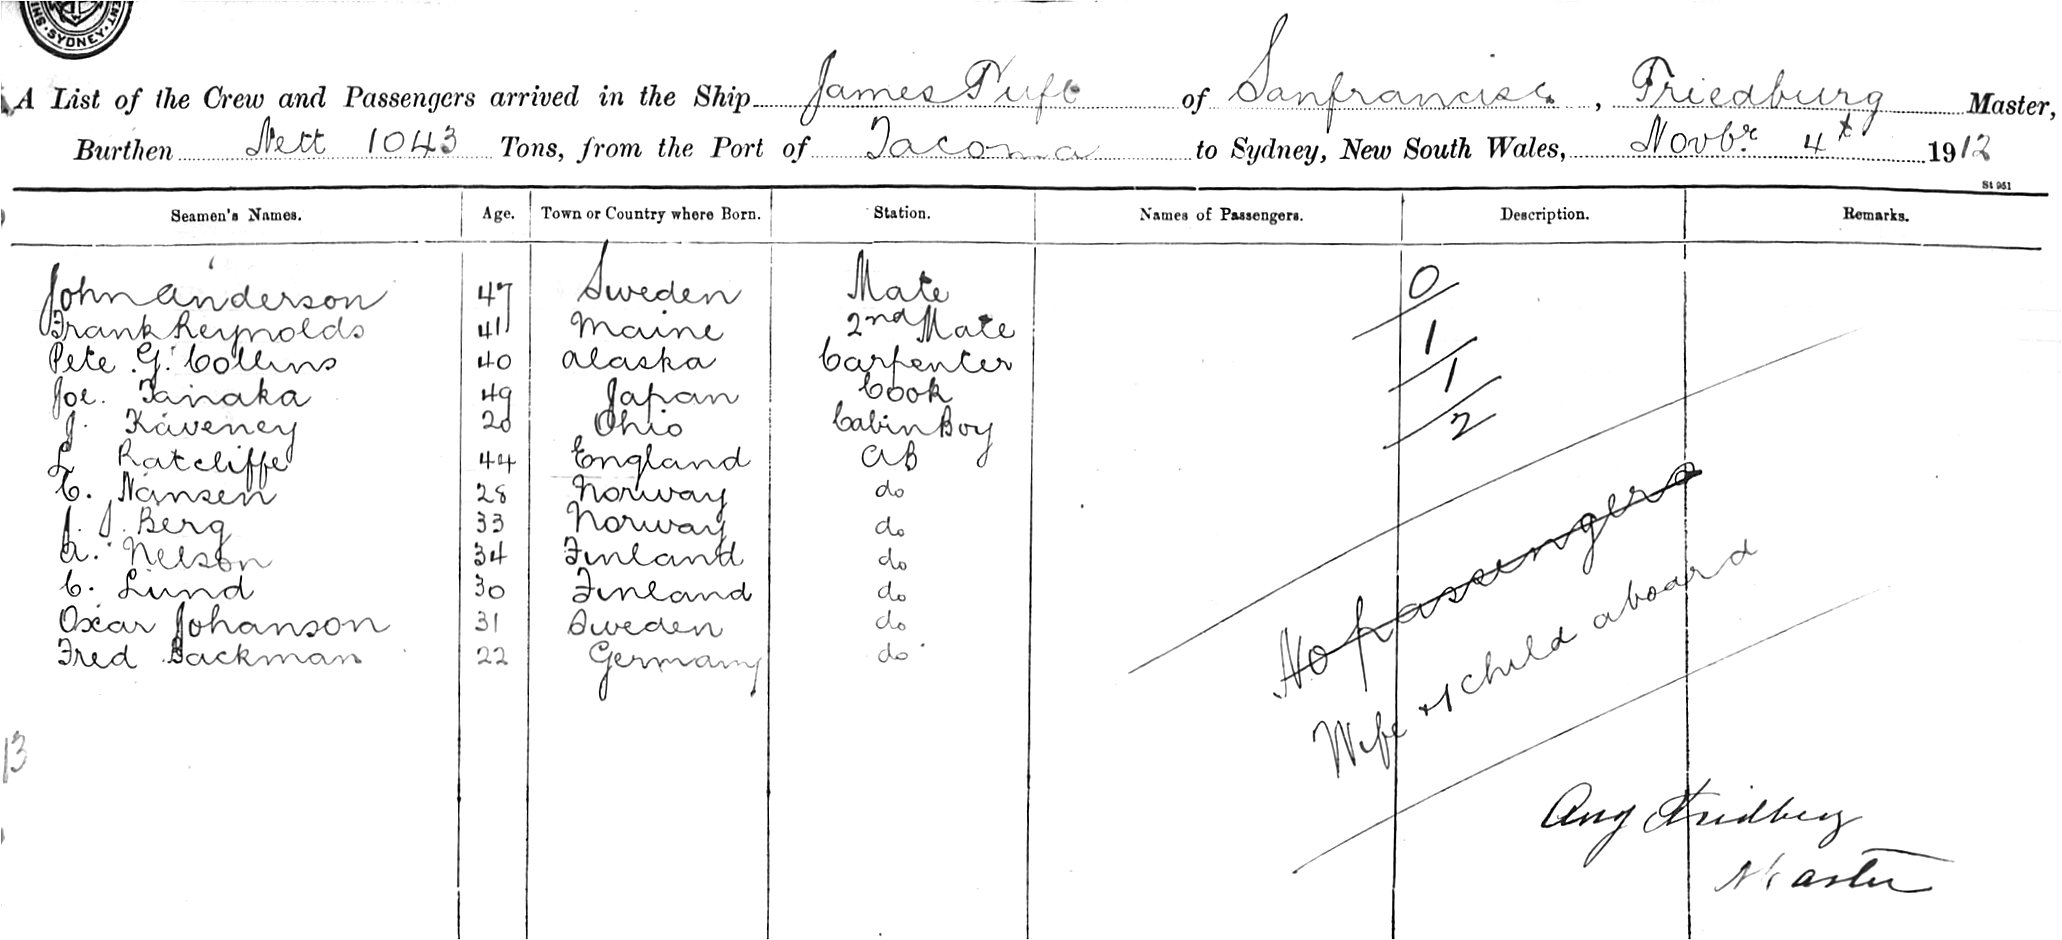 SYDNEY
A List of the Crew and Passengers arrived in the Ship James Tuft of Sanfrancisco, Friedburg Master,
Burthen Nett 1043 Tons, from the Port of Tacoma to Sydney, New South Wales, Novbr 4th 1912
St 951
Seamen's Names. Age. Town or Country where Born. Station. Names of Passengers. Description. Remarks.
John Anderson 47 Sweden Mate
Frank Reynolds 41 Maine 2nd Mate
Pete G. Collins 40 Alaska Carpenter
Joe. Tanaka 49 Japan Cook
J. Kaveney 20 Ohio Cabin Boy
L. Ratcliffe 44 England AB
C. Nansen 28 Norway do
J. J. Berg 33 Norway do
A. Nelson 34 Finland do
C. Lund 30 Finland do
Oscar Johanson 31 Sweden do
Fred Backman 22 Germany do
0
1
1
2
No passengers
Wife & 1 child aboard
13
Aug Friedberg
Master